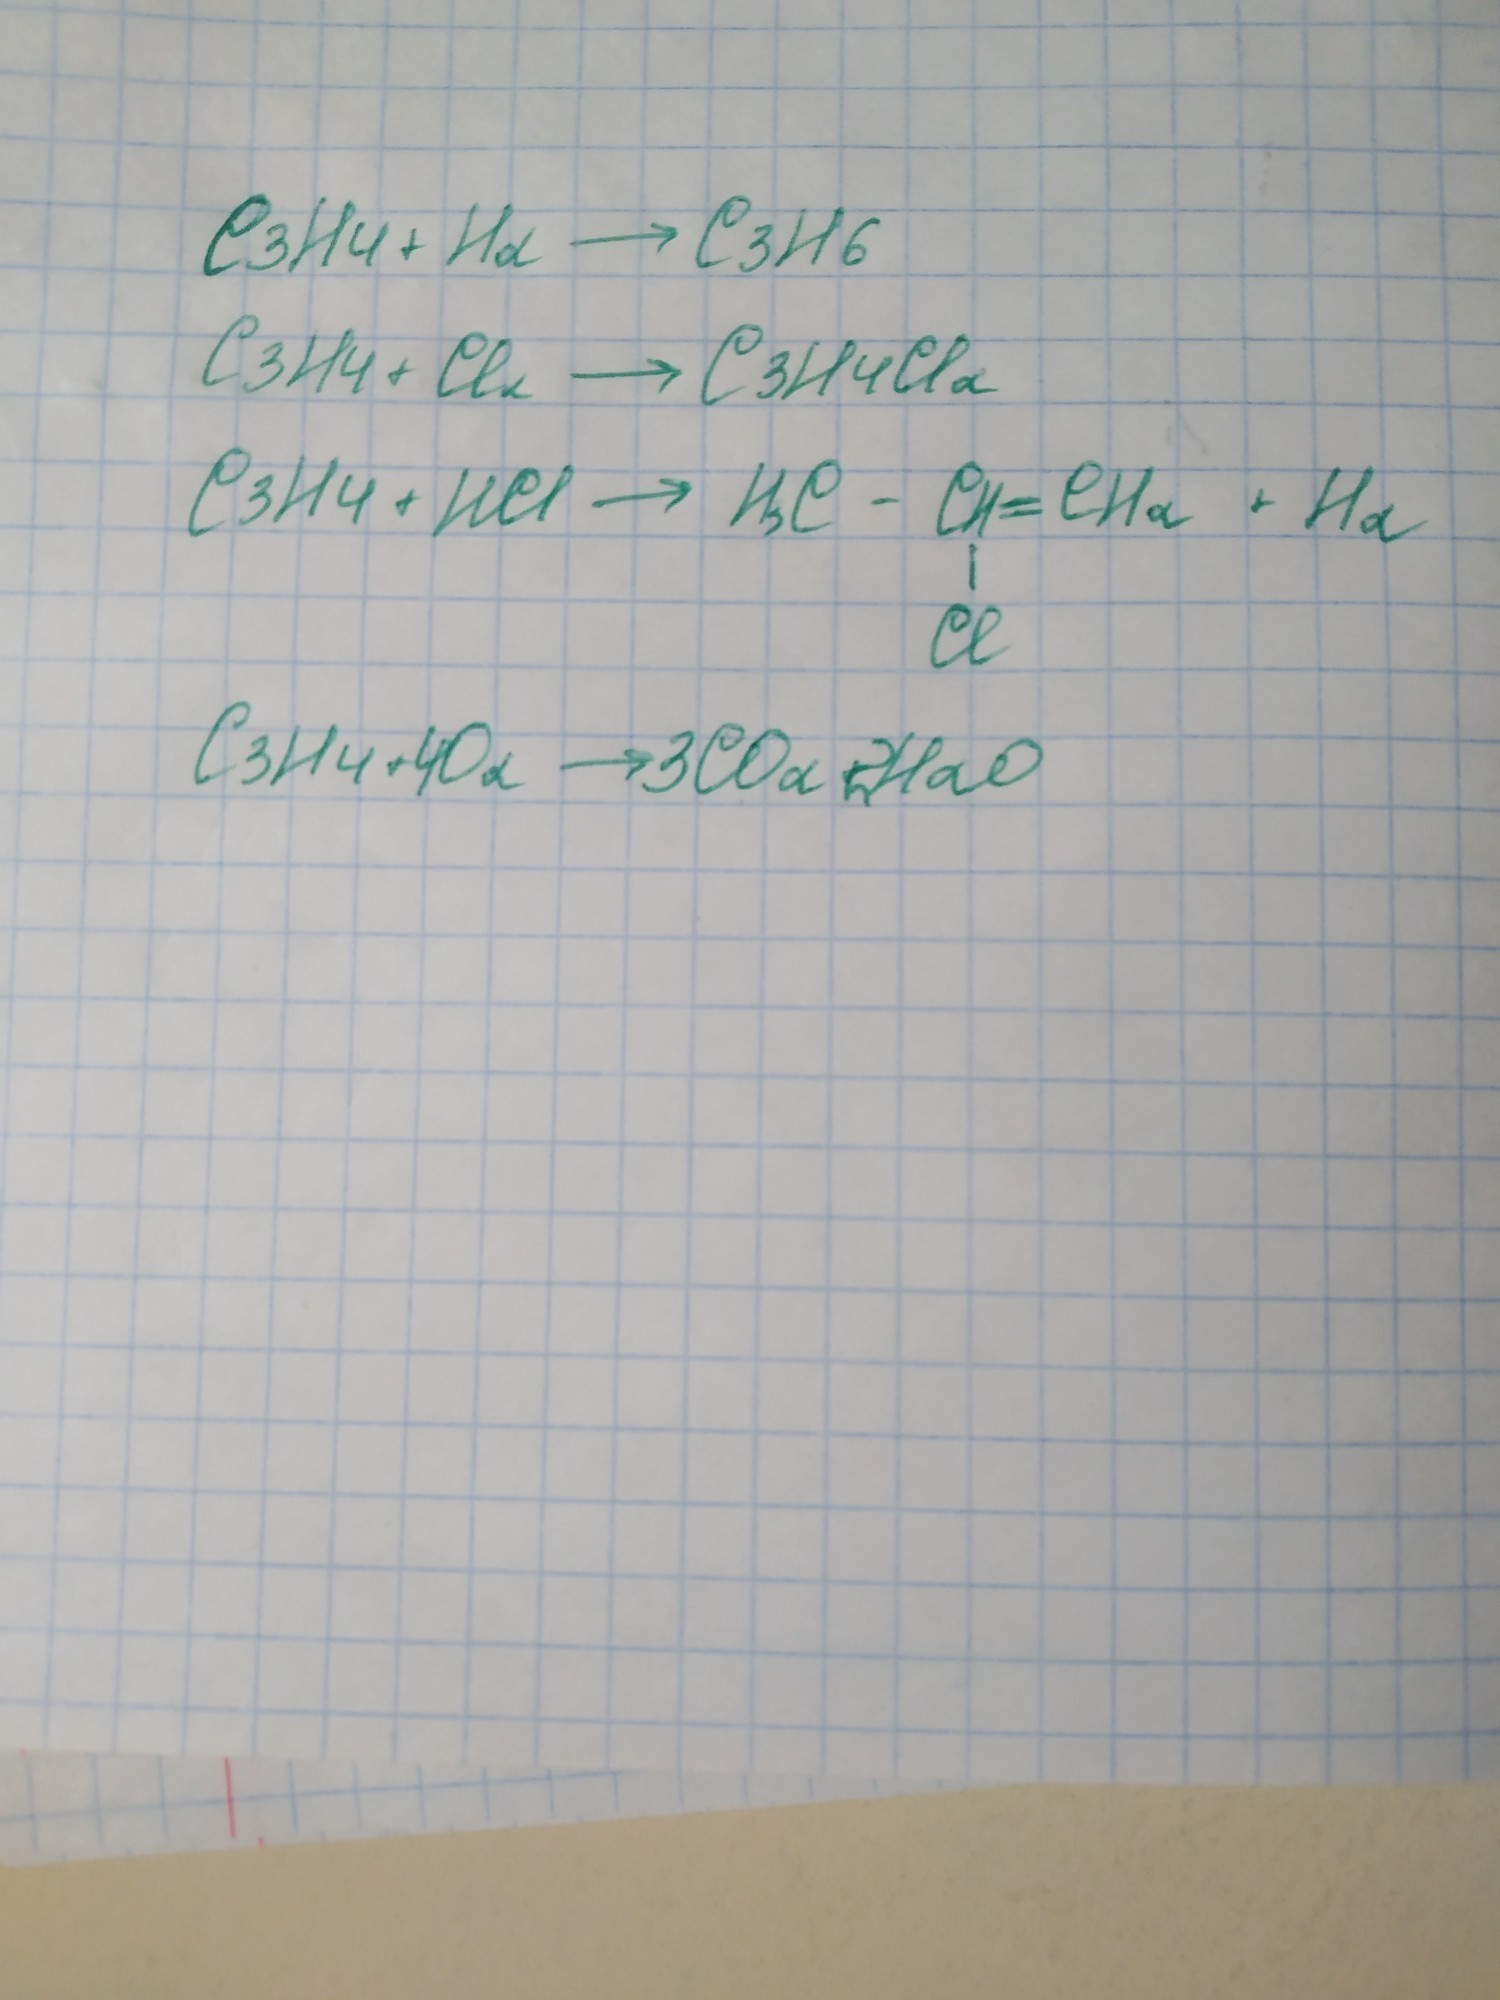 C3H4 + H2 → C3H6
C3H4 + Cl2 → C3H4Cl2
C3H4 + HCl → H3C - CH = CH2 + H2
|
Cl
C3H4 + 4O2 → 3CO2 + 2H2O